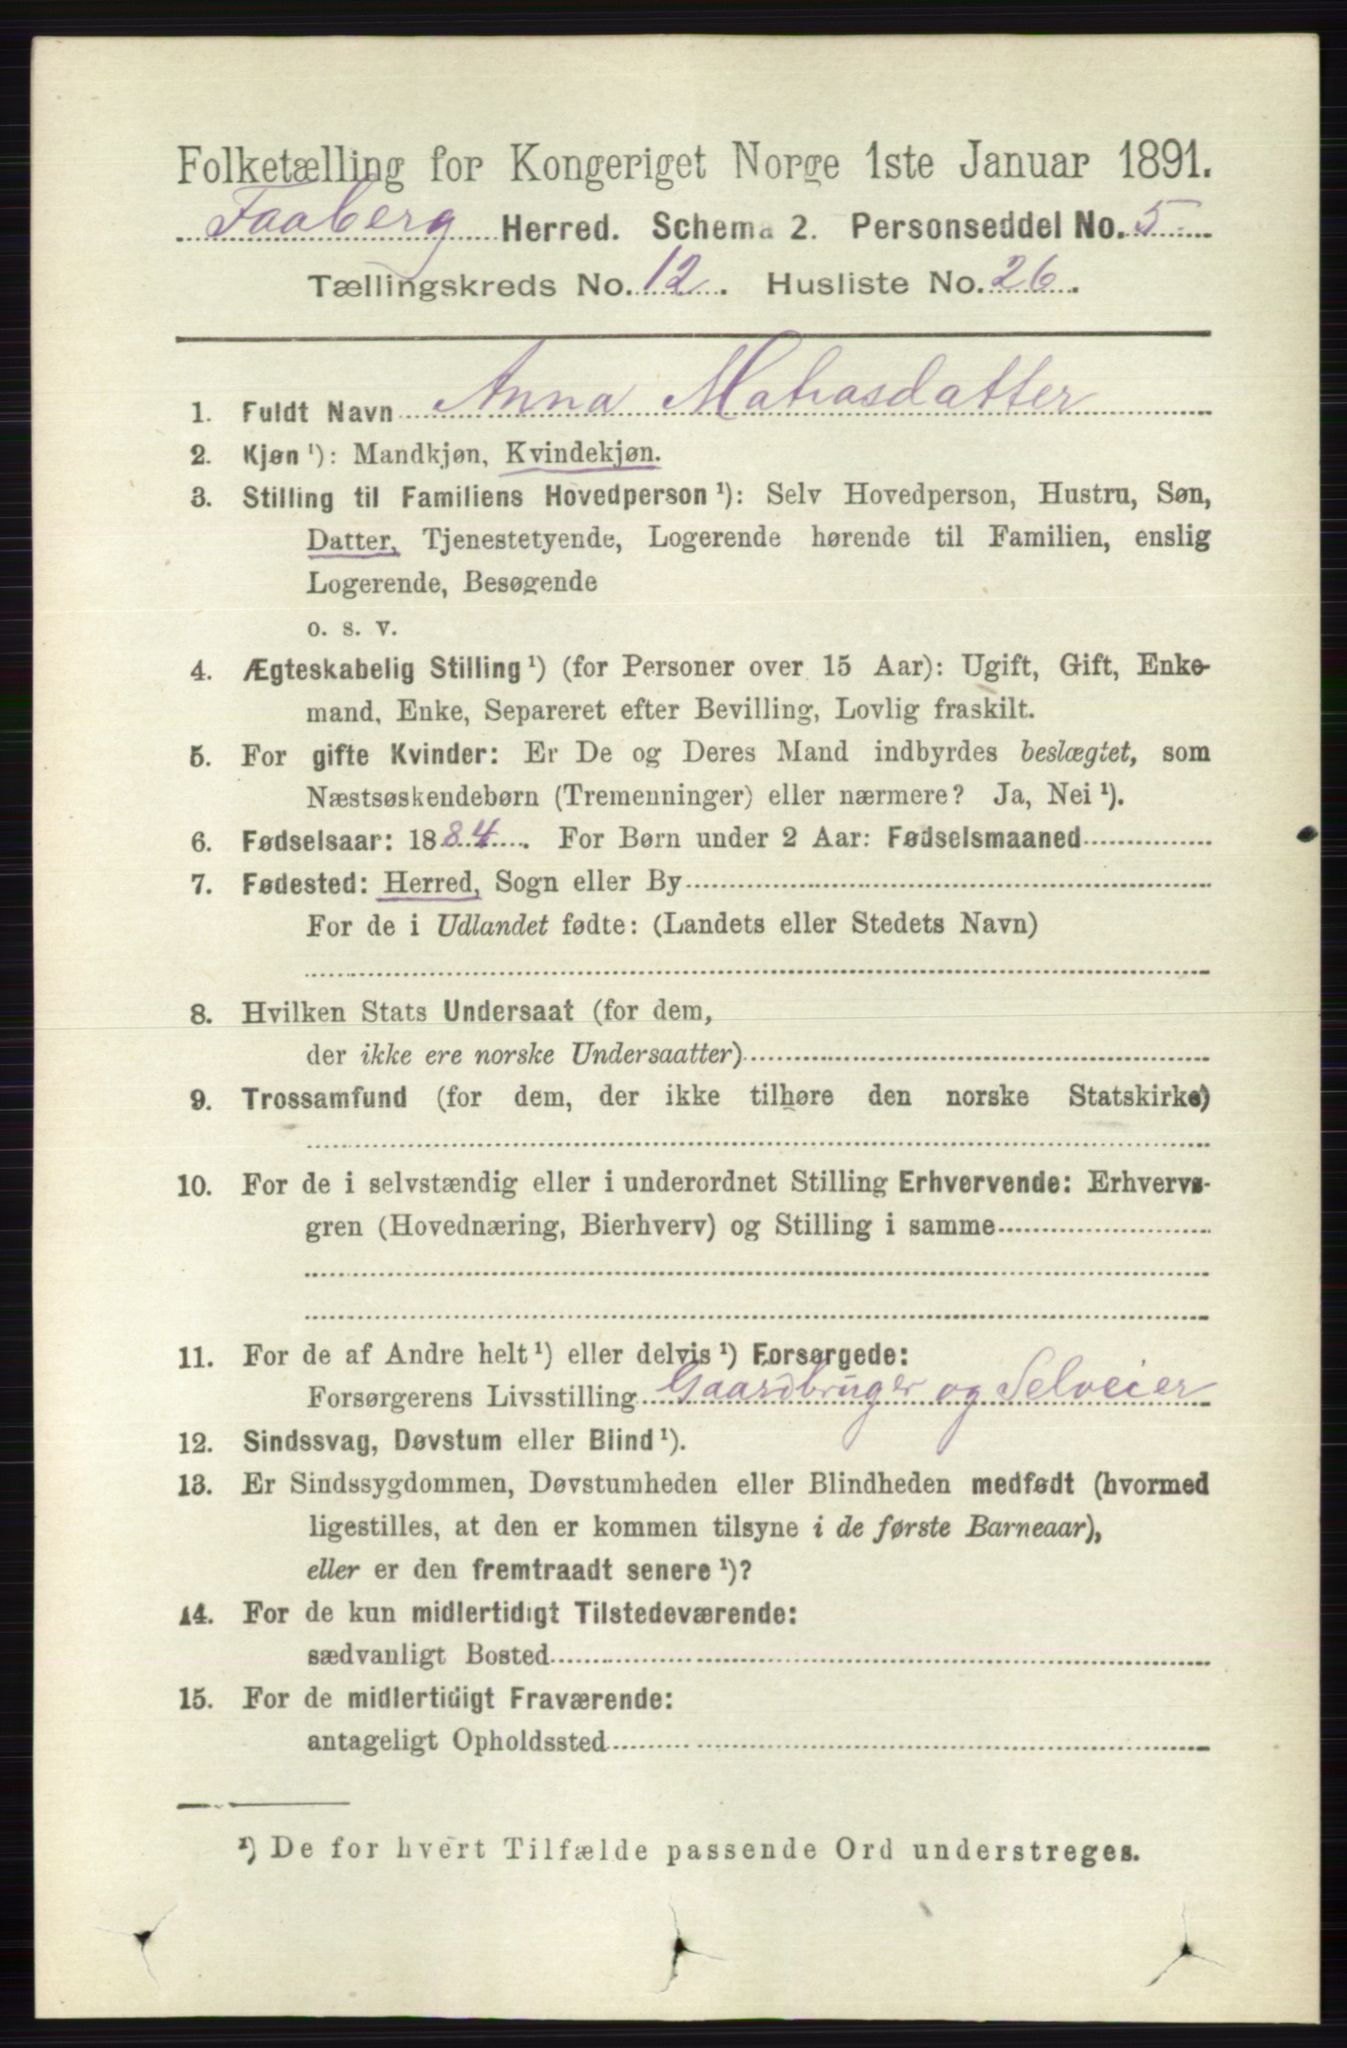 Folketælling for Kongeriget Norge 1ste Januar 1891.
Faaberg Herred. Schema 2. Personseddel No. 5
Tællingskreds No. 12. Husliste No. 26.
1. Fuldt Navn Anna Matiasdatter
2. Kjøn ¹): Mandkjøn, Kvindekjøn.
3. Stilling til Familiens Hovedperson ¹): Selv Hovedperson, Hustru, Søn,
Datter, Tjenestetyende, Logerende hørende til Familien, enslig
Logerende, Besøgende
o. s. v.
4. Ægteskabelig Stilling ¹) (for Personer over 15 Aar): Ugift, Gift, Enke-
mand, Enke, Separeret efter Bevilling, Lovlig fraskilt.
5. For gifte Kvinder: Er De og Deres Mand indbyrdes beslægtet, som
Næstsøskendebørn (Tremenninger) eller nærmere? Ja, Nei ¹).
6. Fødselsaar: 1884. For Børn under 2 Aar: Fødselsmaaned
7. Fødested: Herred, Sogn eller By
For de i Udlandet fødte: (Landets eller Stedets Navn)
8. Hvilken Stats Undersaat (for dem,
der ikke ere norske Undersaatter)
9. Trossamfund (for dem, der ikke tilhøre den norske Statskirke)
10. For de i selvstændig eller i underordnet Stilling Erhvervende: Erhvervs-
gren (Hovednæring, Bierhverv) og Stilling i samme
11. For de af Andre helt ¹) eller delvis ¹) Forsørgede:
Forsørgerens Livsstilling Gaardbruger og Selveier
12. Sindssvag, Døvstum eller Blind ¹).
13. Er Sindssygdommen, Døvstumheden eller Blindheden medfødt (hvormed
ligestilles, at den er kommen tilsyne i de første Barneaar),
eller er den fremtraadt senere ¹)?
14. For de kun midlertidigt Tilstedeværende:
sædvanligt Bosted
15. For de midlertidigt Fraværende:
antageligt Opholdssted
¹) De for hvert Tilfælde passende Ord understreges.